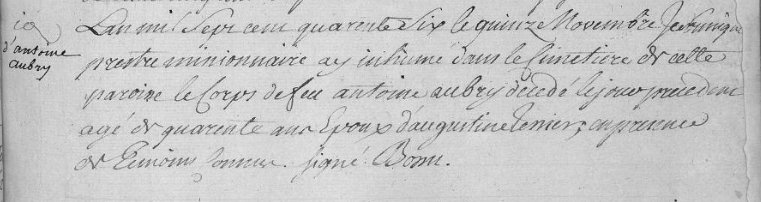 d'antoine
aubry
L'an mil Sept cent quarente Six le quinze Novembre Je Soussigné
prestre missionnaire ay inhumé dans le Cimetiere de cette
paroisse le Corps de feu antoine aubry décedé le jour precedent
agé de quarente ans Epoux d'augustine, en presence
de Temoins Connus. Signé